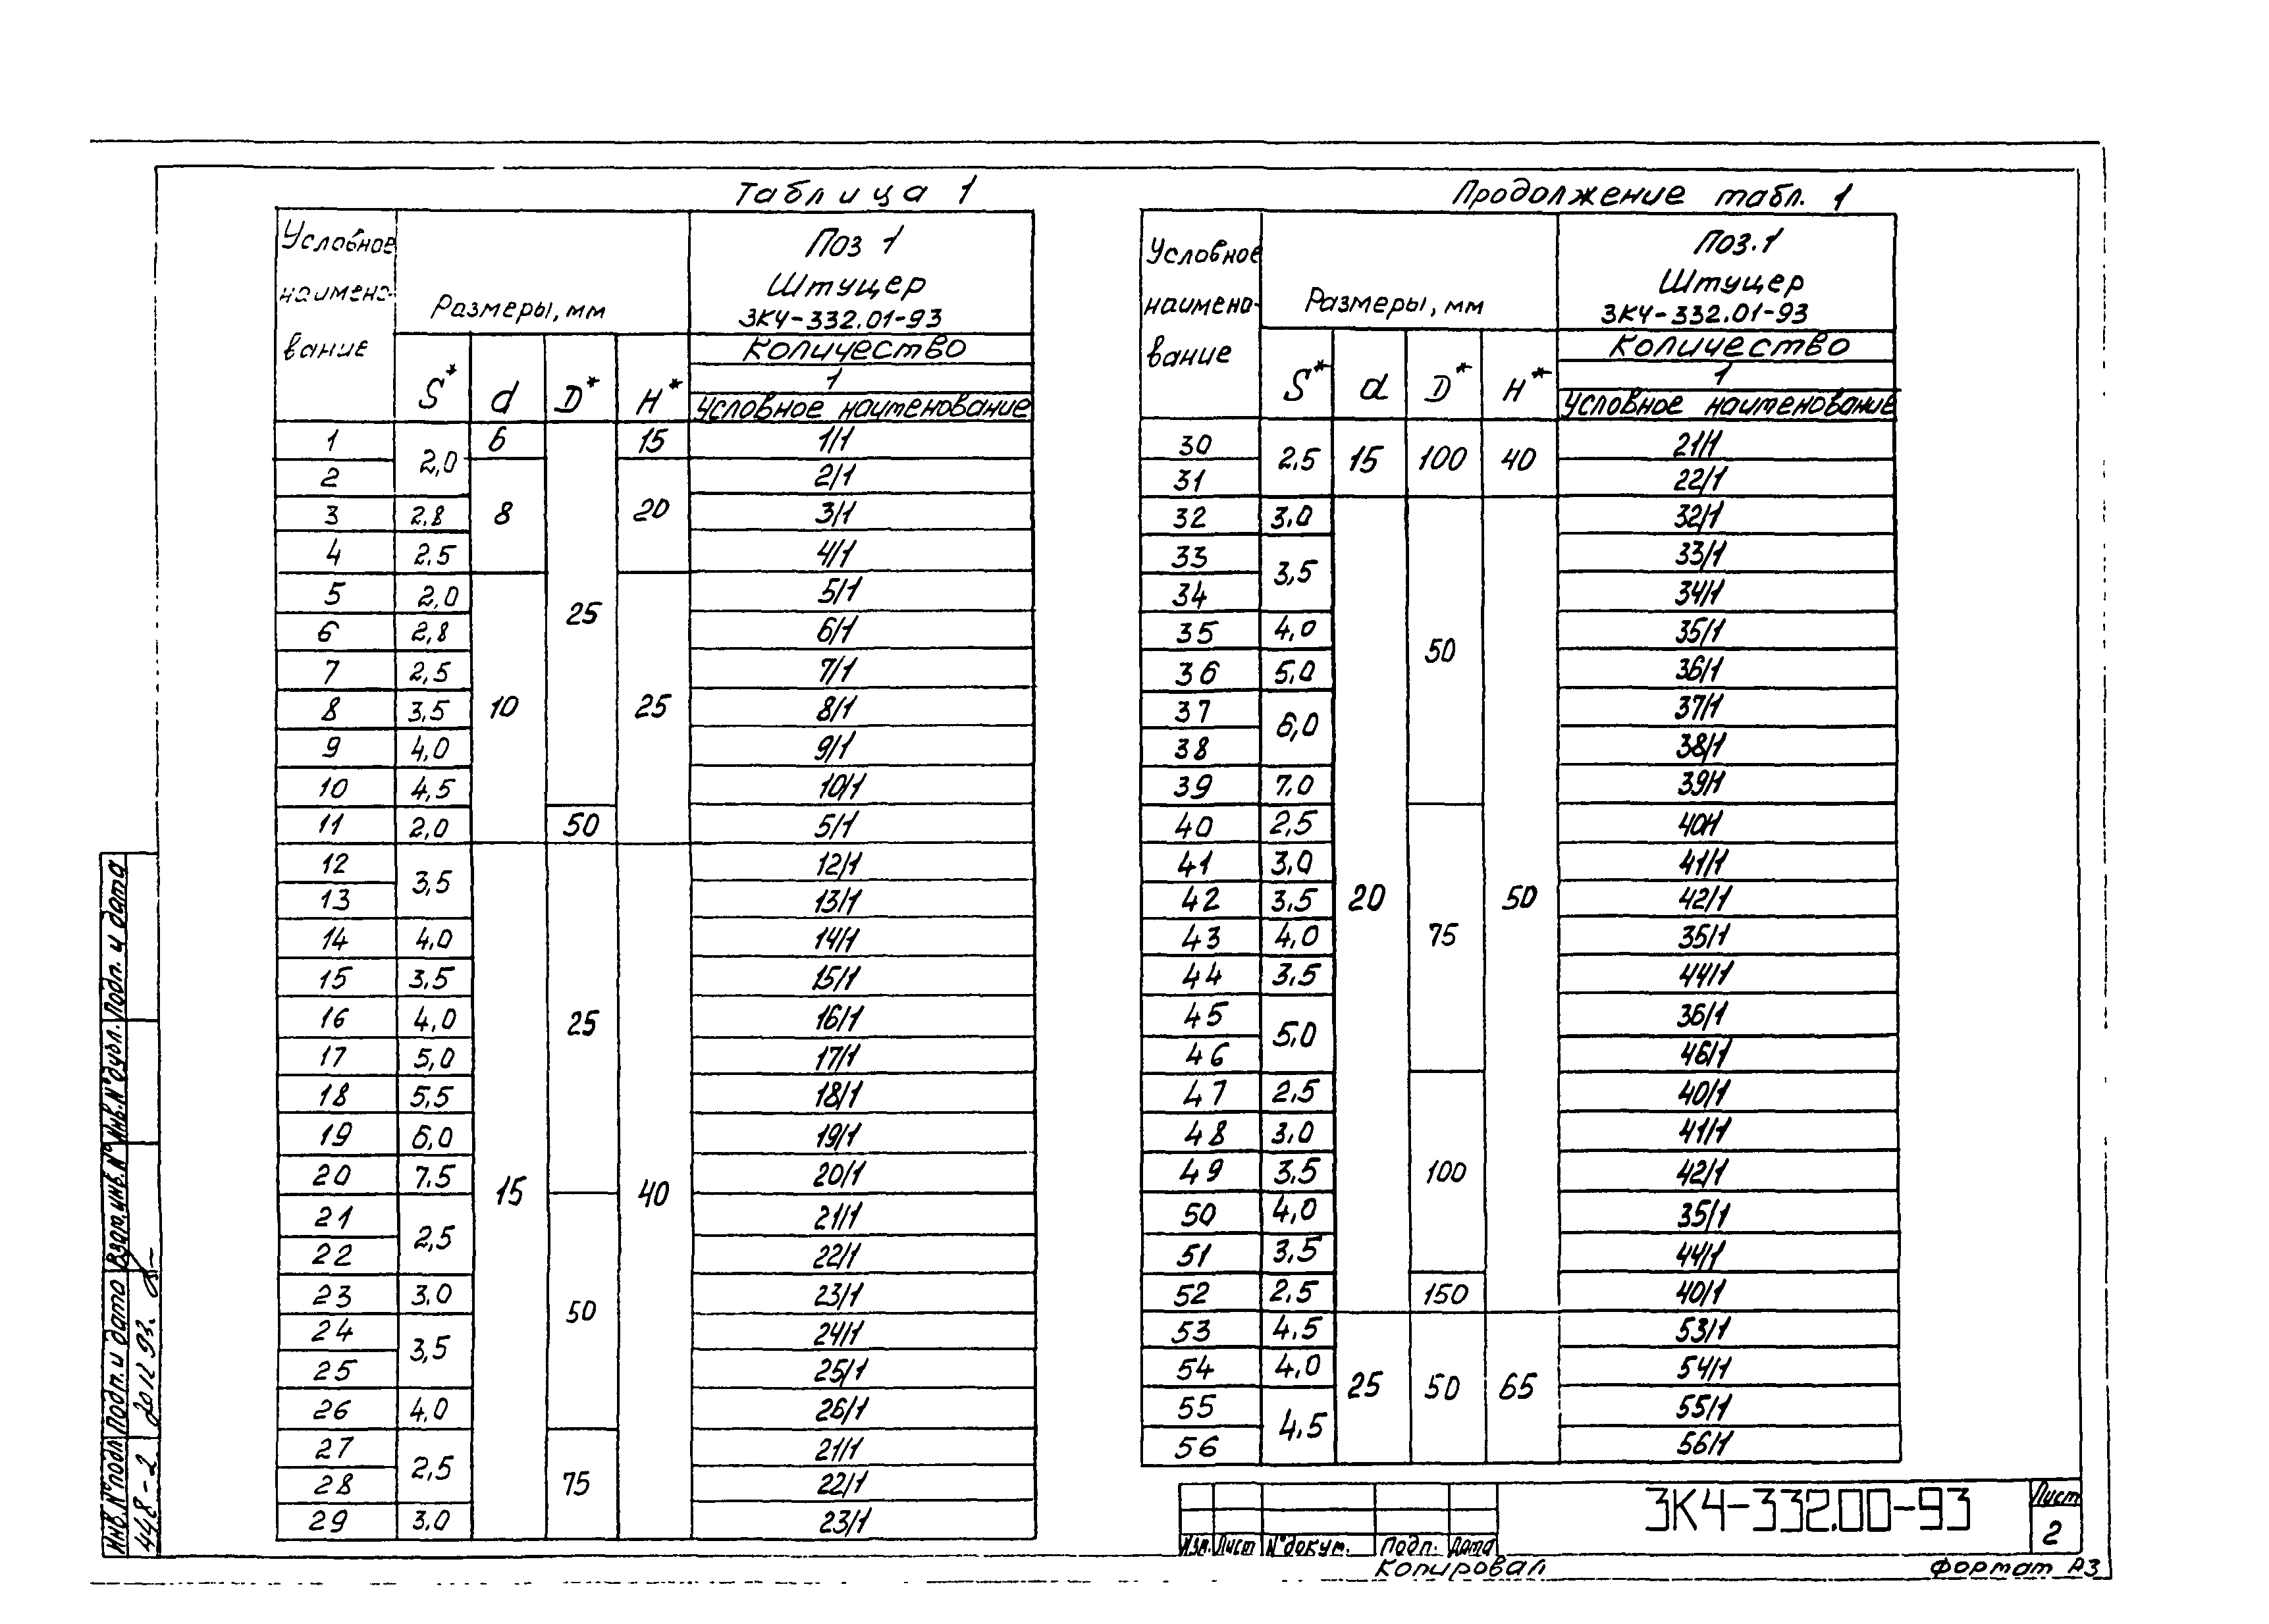 Таблица 1
Условное наимено- вание
Размеры, мм
Поз 1
Штуцер
ЗК4-332.01-93
Количество
1
S* d D* H* Условное наименование
1 2,0 6 25 15 1/1
2 8 20 2/1
3 2,8 3/1
4 2,5 4/1
5 2,0 10 25 5/1
6 2,8 6/1
7 2,5 7/1
8 3,5 8/1
9 4,0 9/1
10 4,5 10/1
11 2,0 50 5/1
12 3,5 15 25 40 12/1
13 13/1
14 4,0 14/1
15 3,5 15/1
16 4,0 16/1
17 5,0 17/1
18 5,5 18/1
19 6,0 19/1
20 7,5 20/1
21 2,5 50 21/1
22 22/1
23 3,0 23/1
24 3,5 24/1
25 25/1
26 4,0 26/1
27 2,5 75 21/1
28 22/1
29 3,0 23/1
Продолжение табл. 1
Условное наимено- вание
Размеры, мм
Поз.1
Штуцер
ЗК4-332.01-93
Количество
1
S* d D* H* Условное наименование
30 2,5 15 100 40 21/1
31 22/1
32 3,0 20 50 50 32/1
33 3,5 33/1
34 34/1
35 4,0 35/1
36 5,0 36/1
37 6,0 37/1
38 38/1
39 7,0 39/1
40 2,5 75 40/1
41 3,0 41/1
42 3,5 42/1
43 4,0 35/1
44 3,5 44/1
45 5,0 36/1
46 46/1
47 2,5 100 40/1
48 3,0 41/1
49 3,5 42/1
50 4,0 35/1
51 3,5 44/1
52 2,5 150 40/1
53 4,5 25 50 65 53/1
54 4,0 54/1
55 4,5 55/1
56 56/1
Инв.N°подл Подп. и дата Взам.инв.N° Инв.N°дубл. Подп. и дата
448-2 20 12 93.
Изм. Лист N°докум. Подп. Дата
ЗК4-332.00-93
Лист
2
Копировал
Формат А3